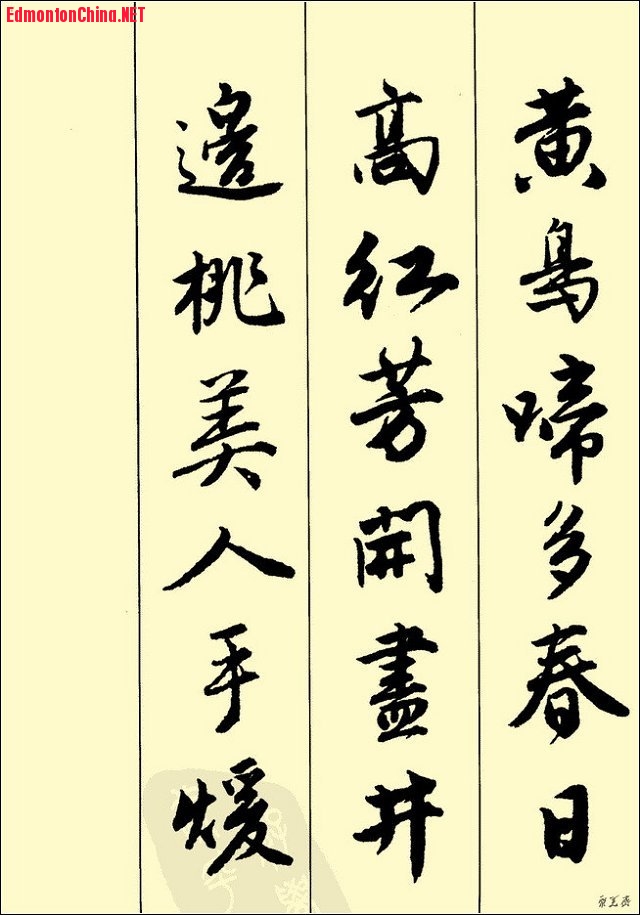 EdmontonChina.NET
黄鳥啼多春日
高紅芳開盡井
邊桃美人手暖